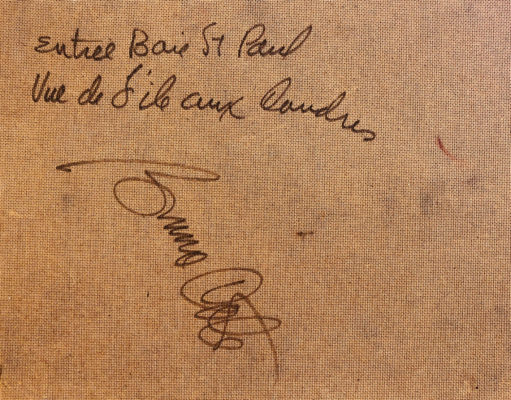 Entrée Baie St Paul
Vue de l'ile aux Coudres
Bruno Côté